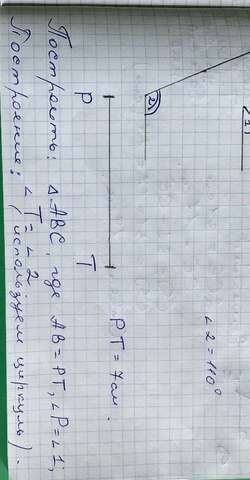 1
2
∠2 = 110°
P
T
PT = 7см.
Построить: △ABC, где AB = PT, ∠P = ∠1;
∠T = ∠2
Построение: (используем циркуль).